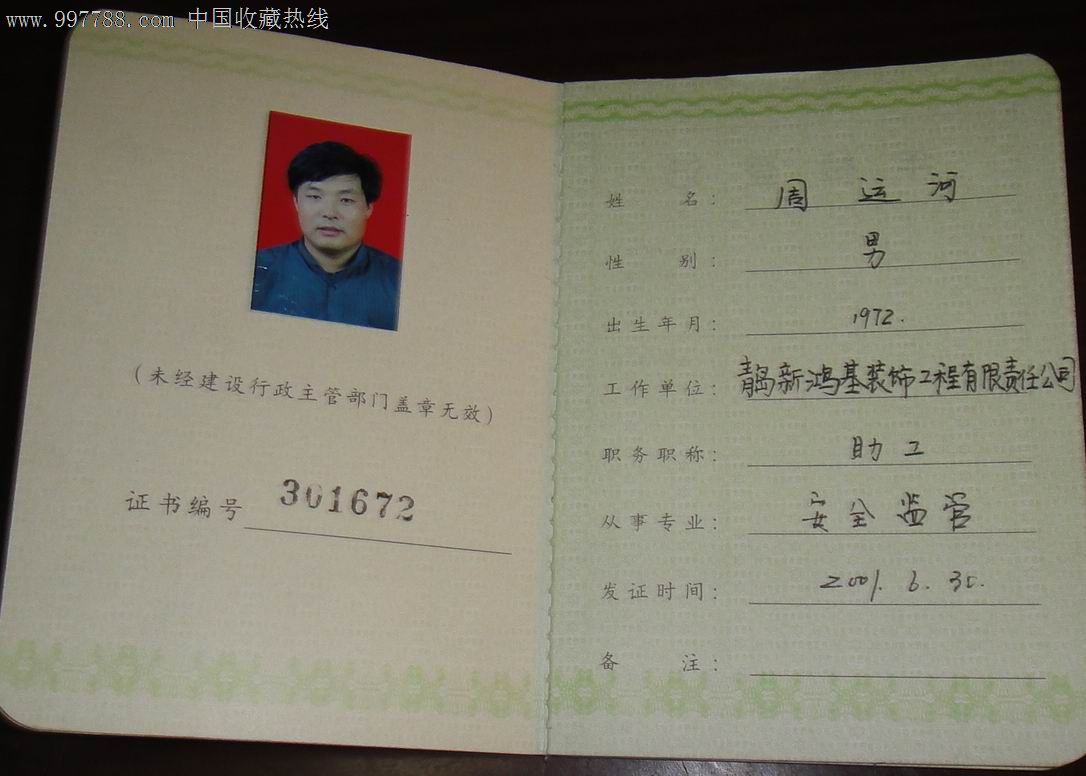 www.997788.com 中国收藏热线
(未经建设行政主管部门盖章无效)
证书编号 301672
姓 名: 周运河
性 别: 男
出生年月: 1972.
工作单位: 青岛新鸿基装饰工程有限责任公司
职务职称: 助工
从事专业: 安全监管
发证时间: 2001.6.30.
备 注: